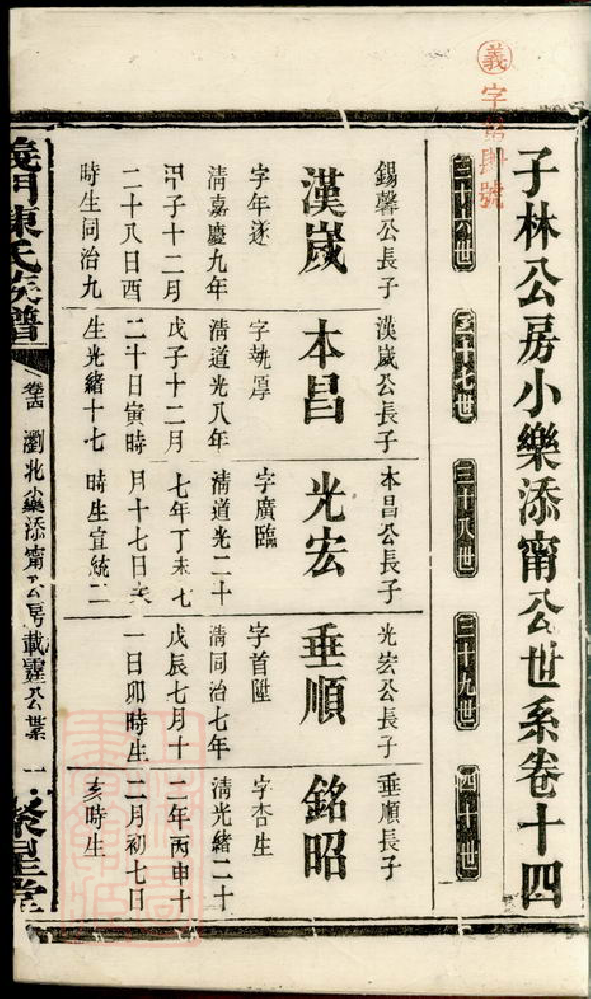 義字第 號
子林公房小樂添甯公世系卷十四
三十六世
三十七世
三十八世
三十九世
四十世
錫馨公長子
漢嵗
字年遂
清嘉慶九年
甲子十二月
二十八日酉
時生同治九
漢嵗公長子
本昌
字厚
清道光八年
戊子十二月
二十日寅時
生光緒十七
本昌公長子
光宏
字廣臨
清道光二十
七年丁未七
月十七日亥
時生宣統二
光宏公長子
垂順
字首陞
清同治七年
戊辰七月十
一日卯時生
垂順長子
銘昭
字杏生
清光緒二十
二年丙申十
二月初七日
亥時生
義門陳氏族譜
卷十四
瀏北小樂添甯公房載靈公世系
一
聚星堂